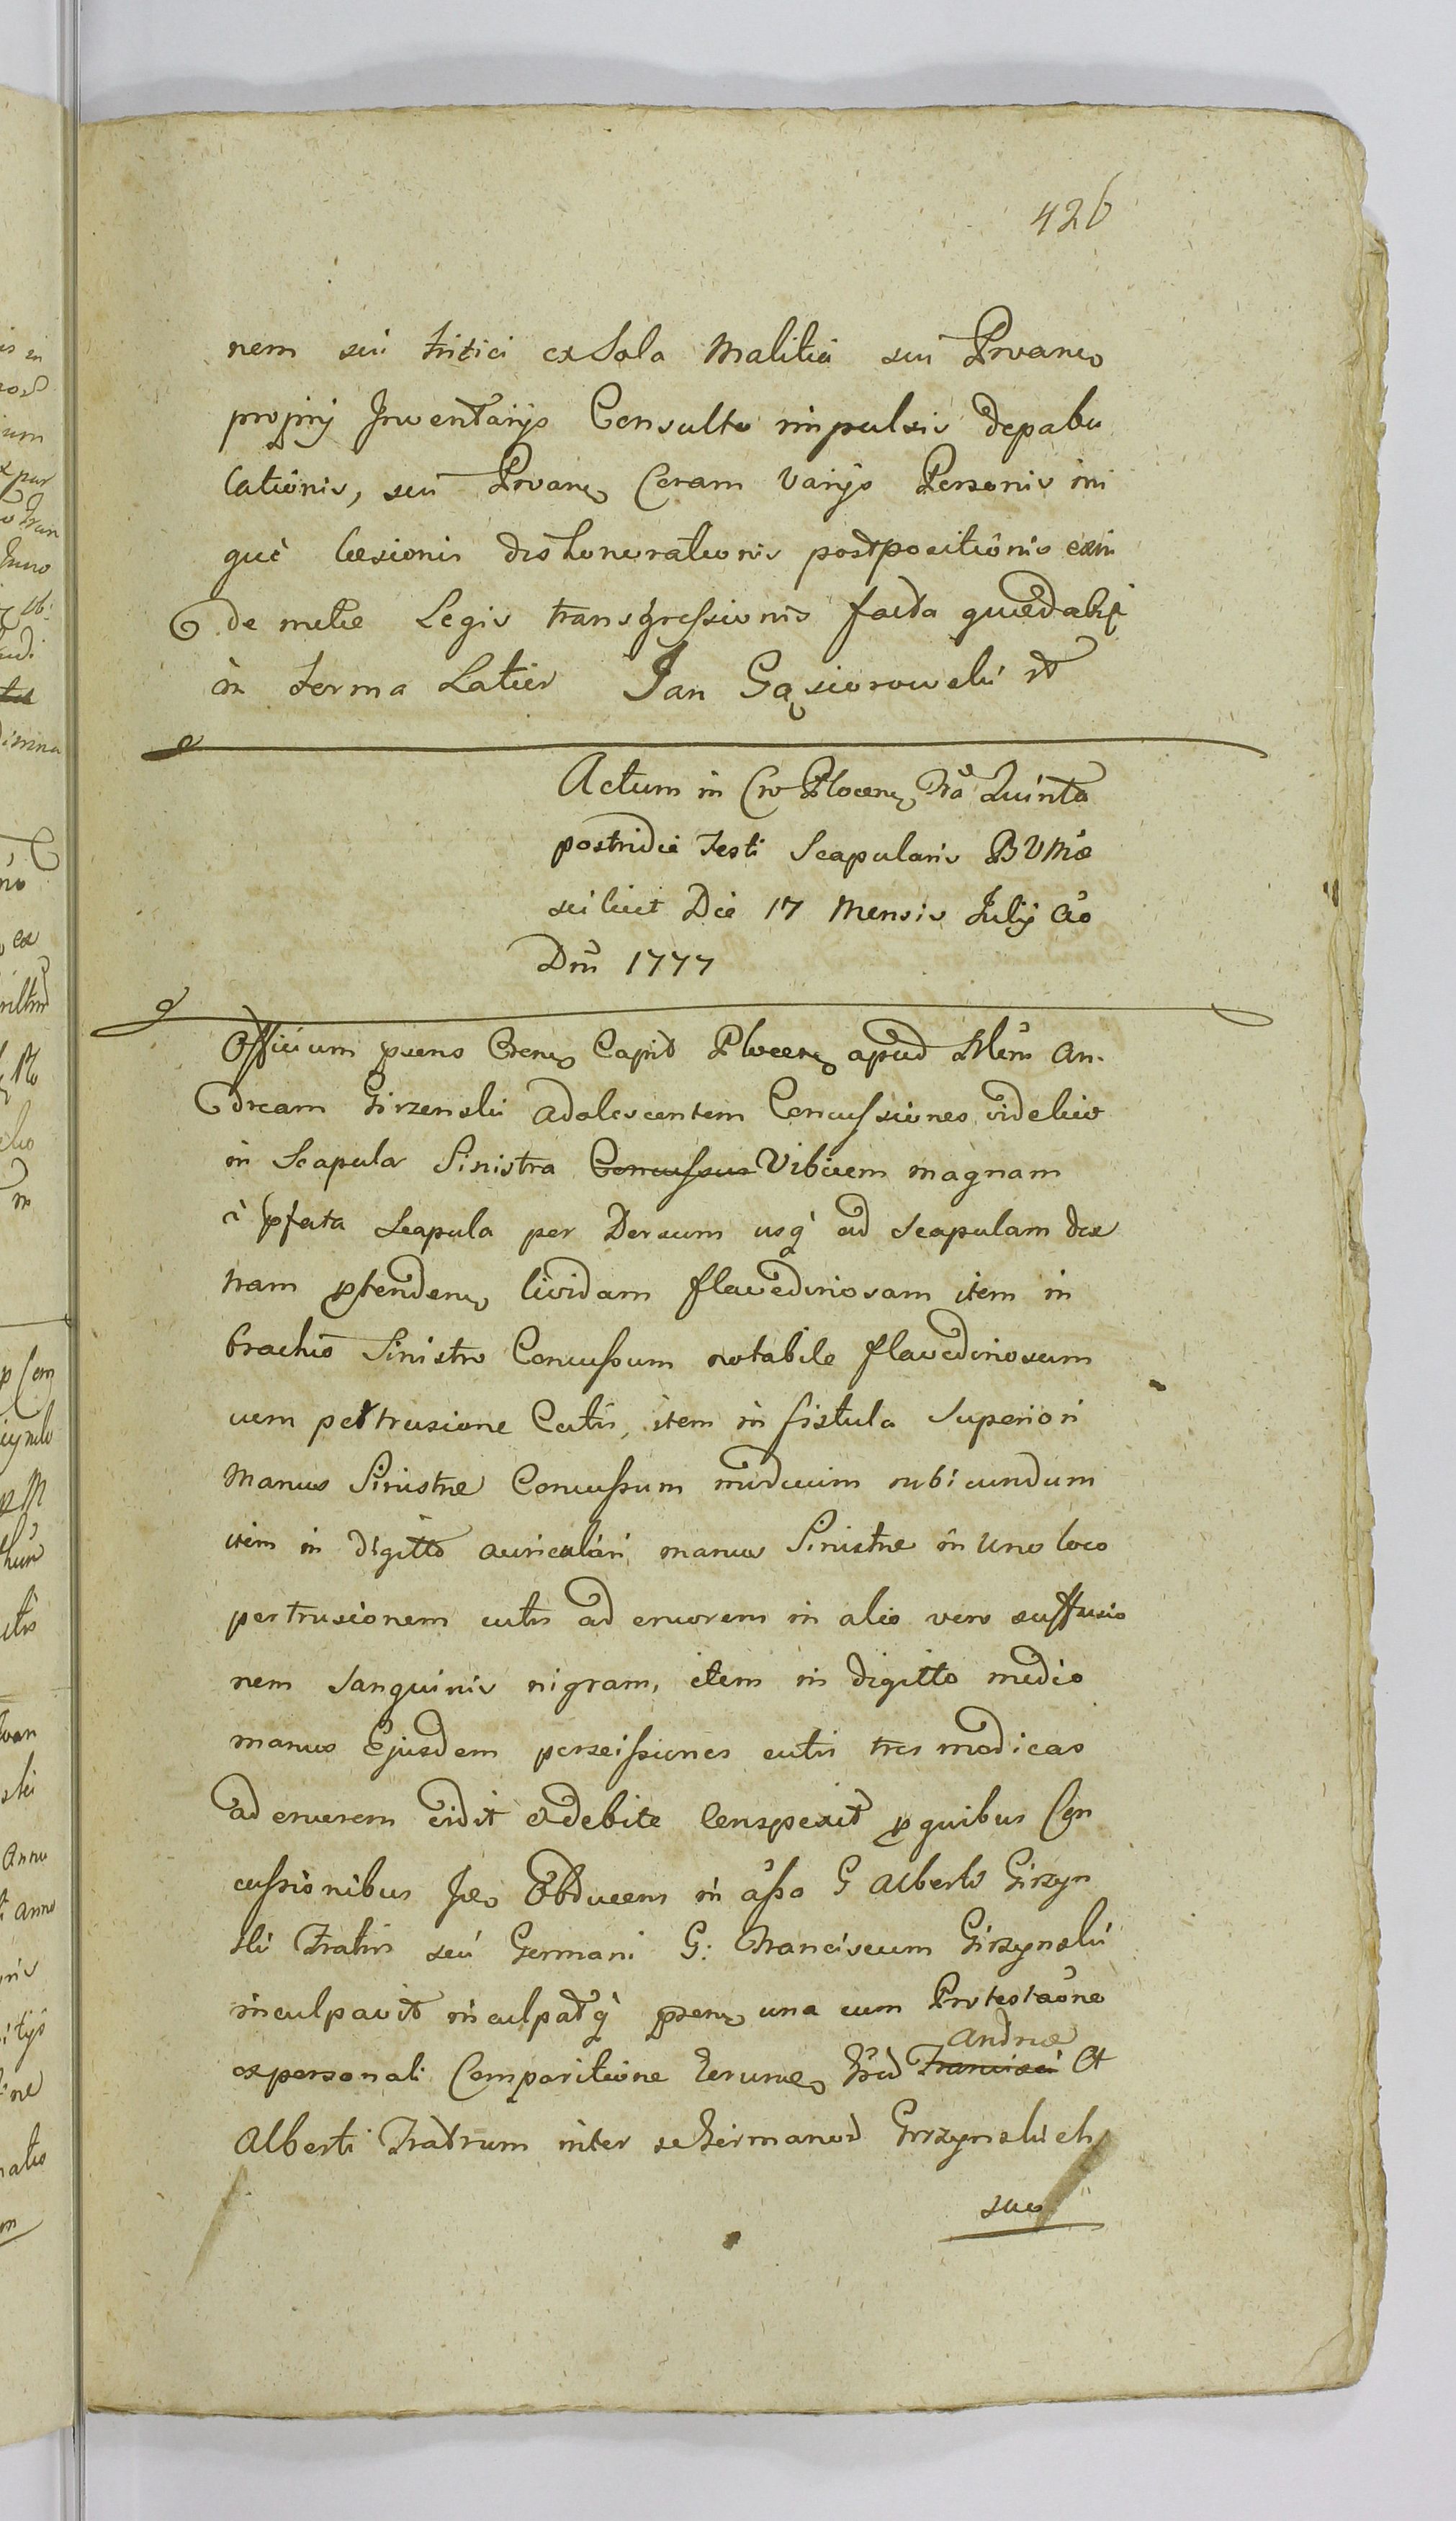 426
nem sui tritici ex Sola Malitia sui Privanõ
proprij Inventarijs Consulto impulsis depabu
lationis, sui Privanõ Coram varijs Personis ini
què læsionis dishonorationis postpositionis exin
de metæ Legis transgressionis facta quædablẽ
in forma Latior Jan Gąsiorowski
Actum in Cro Plocenõ Fra Quinta
postridie Festi Scapularis BVMæ
scilicet Die 17 Mensis Julij Ao
Dni 1777
Officium præns Crenõ Capit Plocenõ apud Mlem An-
dream Girzenski adolescentem Concussiones videlicet
in Scapula Sinistra Concussus Vibicem magnam
à pfata Scapula per Dorsum usq ad Scapulam dex
tram ptendenõ lividam flavedinosam item in
brachio Sinistro Concussum notabile flavedinosum
cum pertrusione Cutis, item in fistula superiori
Manus Sinistræ Concussum modicum rubicundum
item in digitto auriculari manus Sinistræ in uno loco
pertrusionem cutis ad cruorem in alio vero suffusio
nem sanguinis nigram, item in digitto medio
manus Ejusdem perscissiones cutis tres modicas
ad cruorem vidit et debite Conspexit p quibus Con
cussionibus Obducens in asso G Alberti Girzyn
ski Fratris sui Germani G: Franciscum Girzynski
inculpavit inculpatq prænõ una cum Protestaone
ex personali Comparitione Andreæ
Francisci Et
Alberti Fratrum inter se Germanor Girzynskich
suo